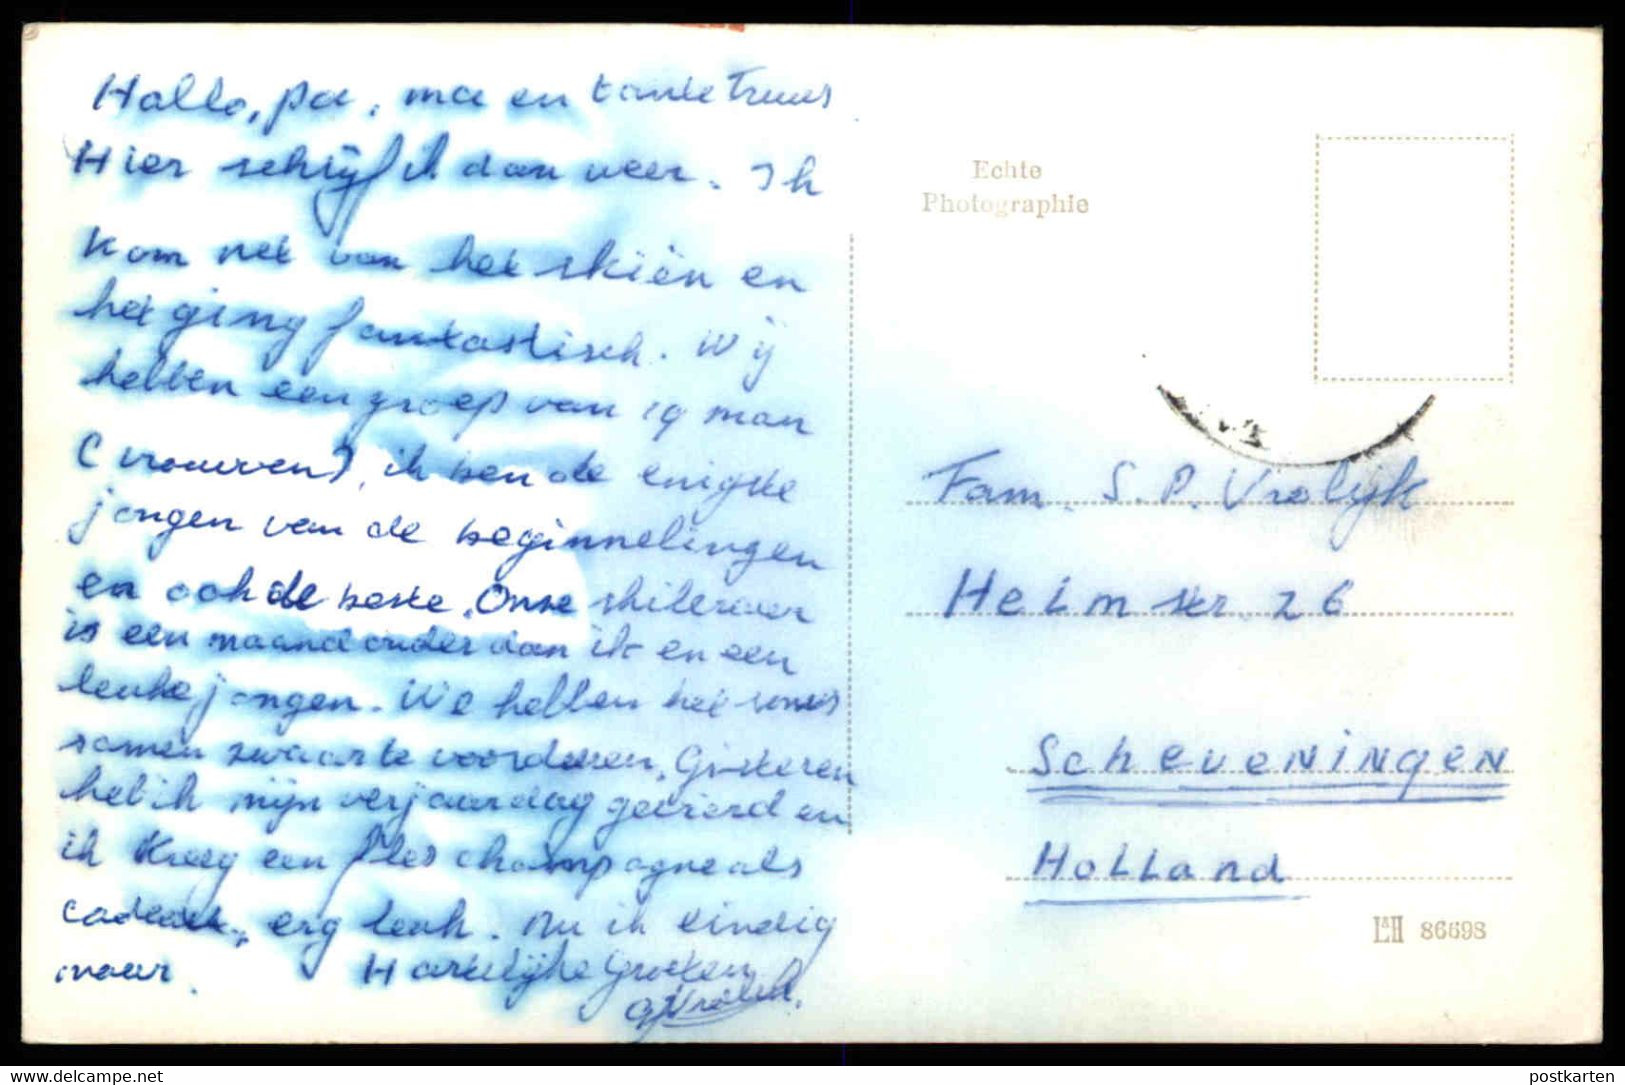 Hallo, pa, ma en tante Truus
Hier schrijf ik dan weer. Ik
kom net van het skiën en
het ging fantastisch. Wij
hebben een groep van 19 man
(vrouwen), ik ben de enigste
jongen van de beginnelingen
en ook de beste. Onze skileraar
is een maand ouder dan ik en een
leuke jongen. We hebben het soms
samen zwaar te voorduren. Gisteren
heb ik mijn verjaardag gevierd en
ik kreeg een fles champagne als
cadeau, erg leuk. Nu ik eindig
maar. Hartelijke Groeten
Echte
Photographie
Fam. S. P. Vrolijk
Heimstr. 26
Scheveningen
Holland
LH 86698
postkarten.ansichtskarten
postkarten